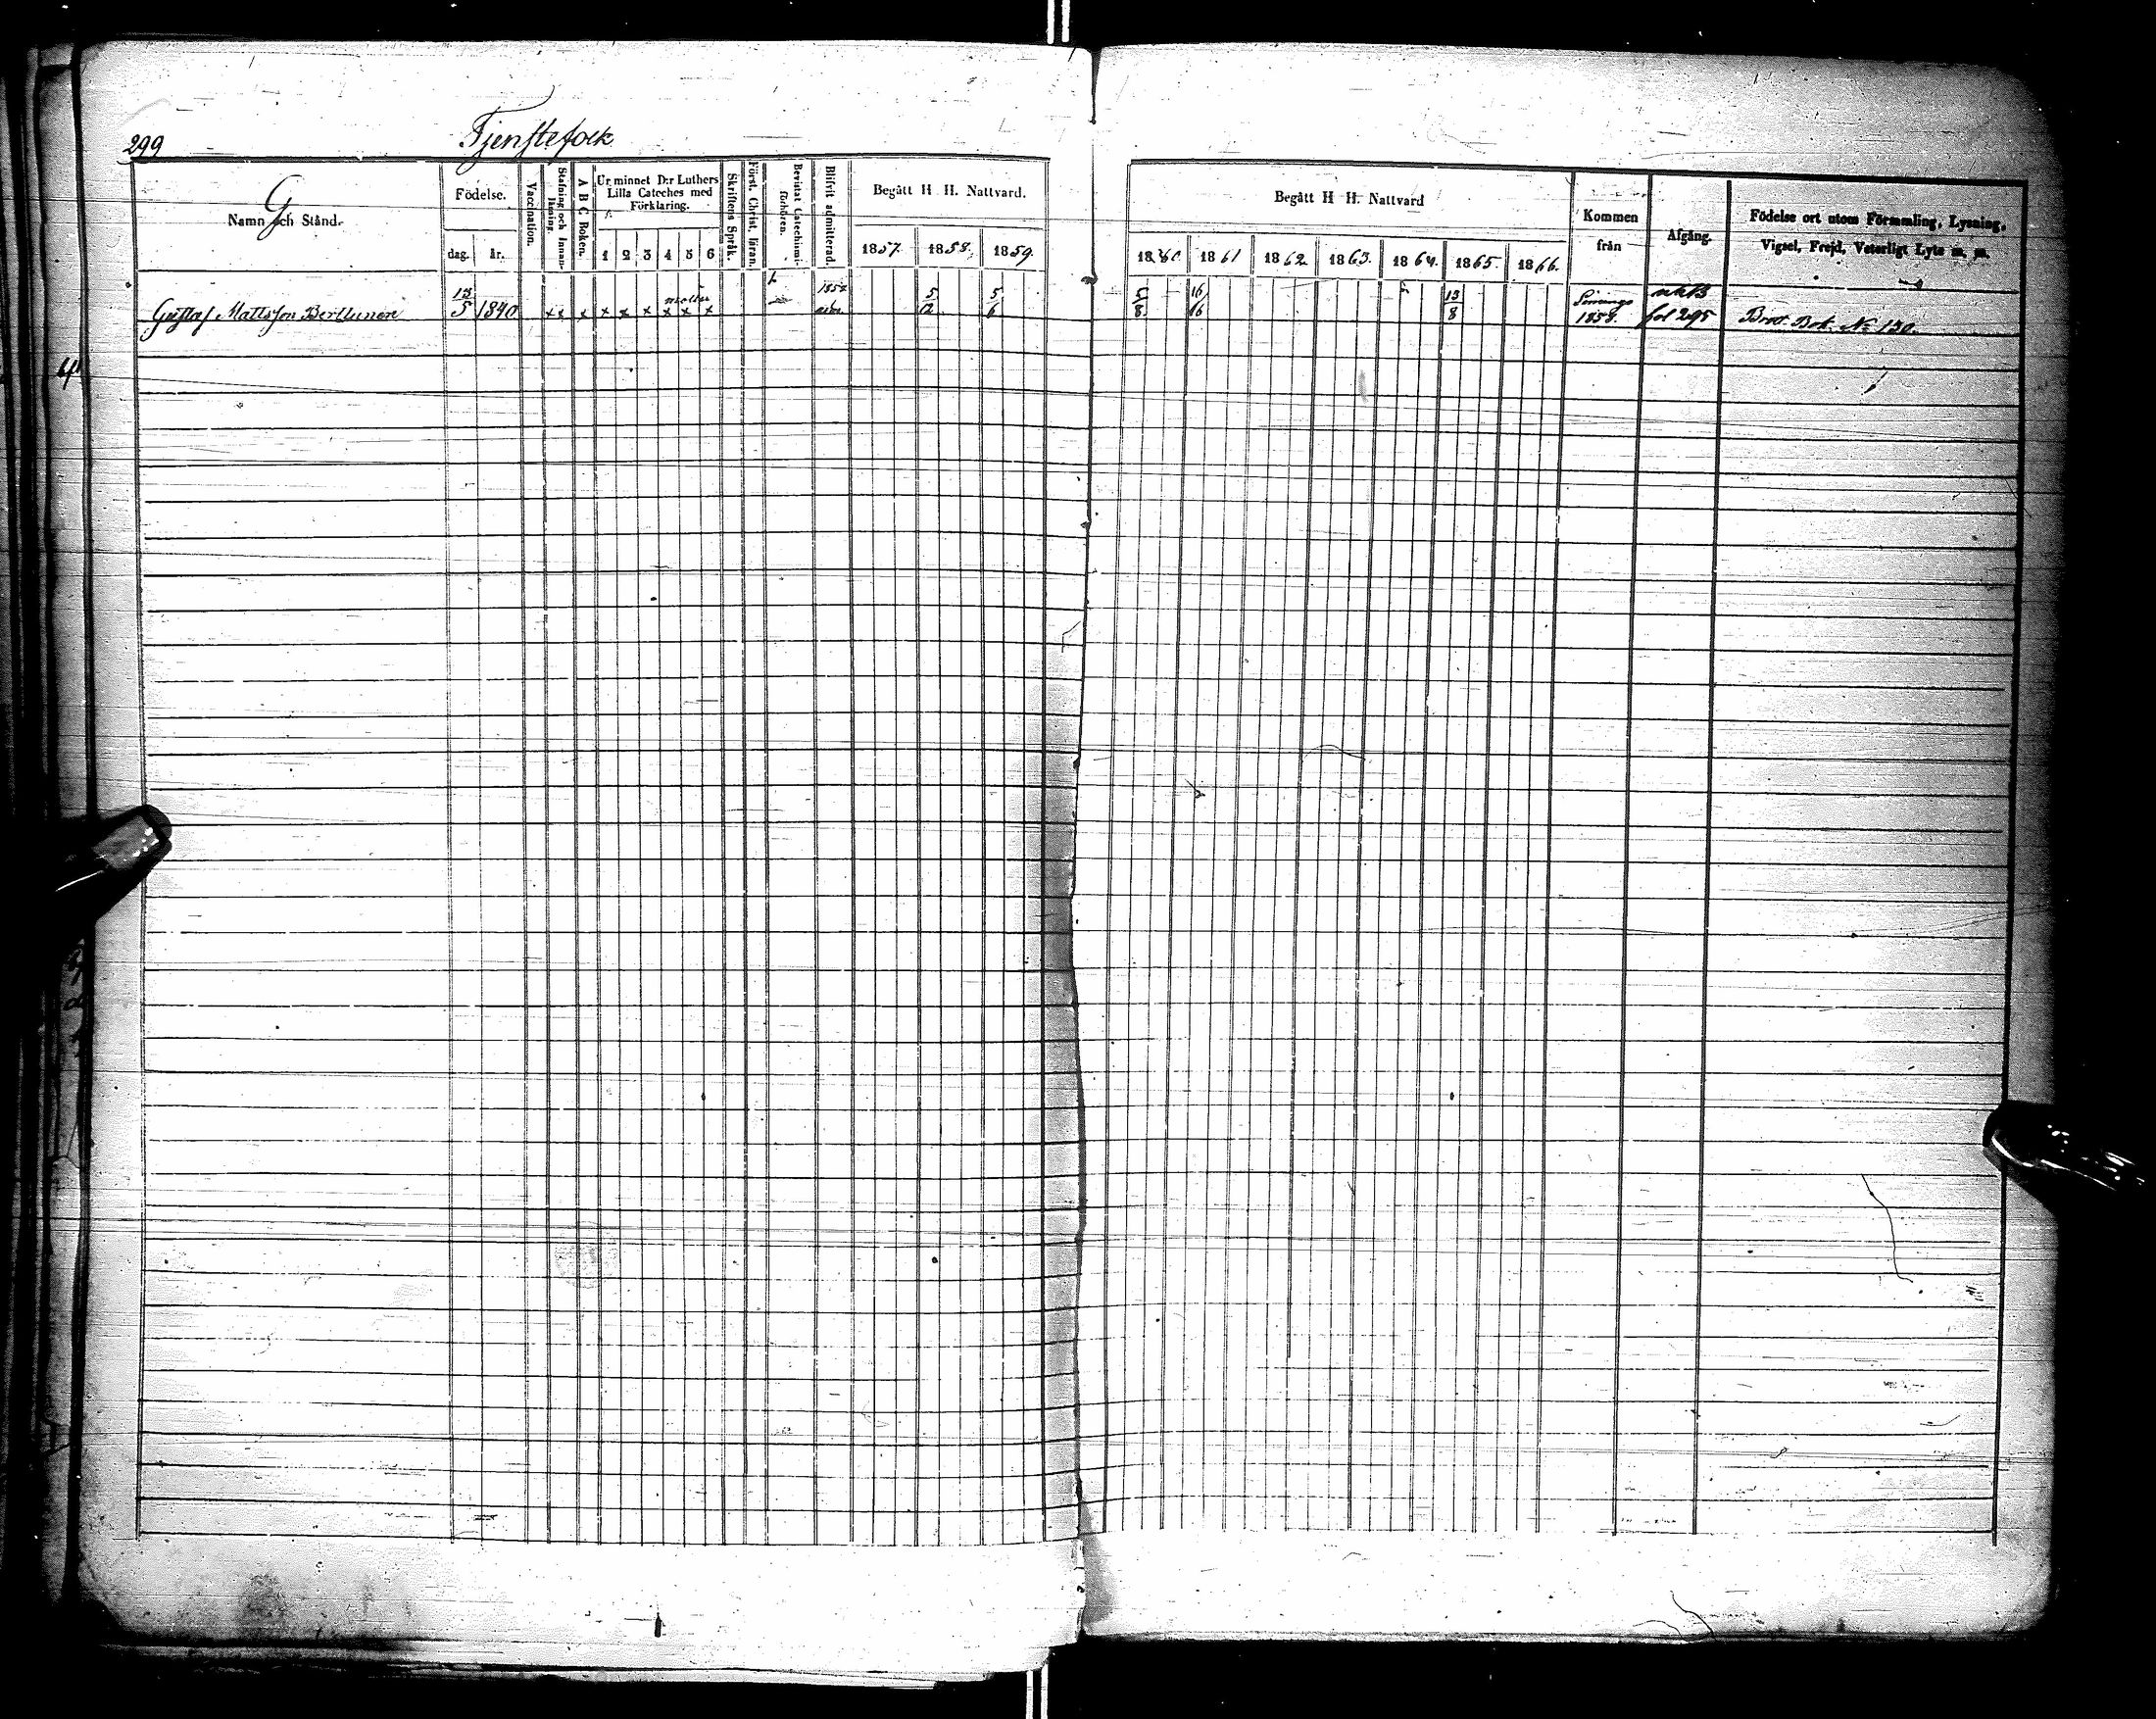 299
Tjenstefolk
G
Namn och Stånd.
Födelse.
dag. år.
Vaccination.
Stafning och Innanläsning.
A B C Boken.
Ur minnet D:r Luthers
Lilla Cateches med
Förklaring.
1 2 3 4 5 6
Skriftens Språk.
Först. Christ. läran.
Bevistat Catechismiförhören.
Blifvit admitterad.
Begått H. H. Nattvard.
1857. 1858. 1859.
Begått H. H. Nattvard
1860. 1861 1862 1863. 1864. 1865. 1866.
Kommen
från
Afgång.
Födelse ort utom Församling, Lysning,
Vigsel, Frejd, Veterligt Lyte m. m.
Gustaf Mattsson
13/5 1840
x x x x x x x x x
5/12 5/6
5/8 16/16 13/8
1858.
fol 295
No 130.